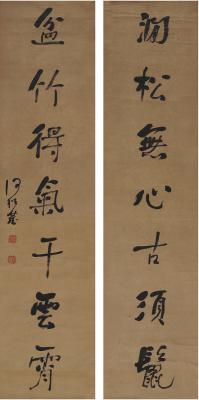 澗松無心古須鬣
盆竹得氣干雲霄
何紹基